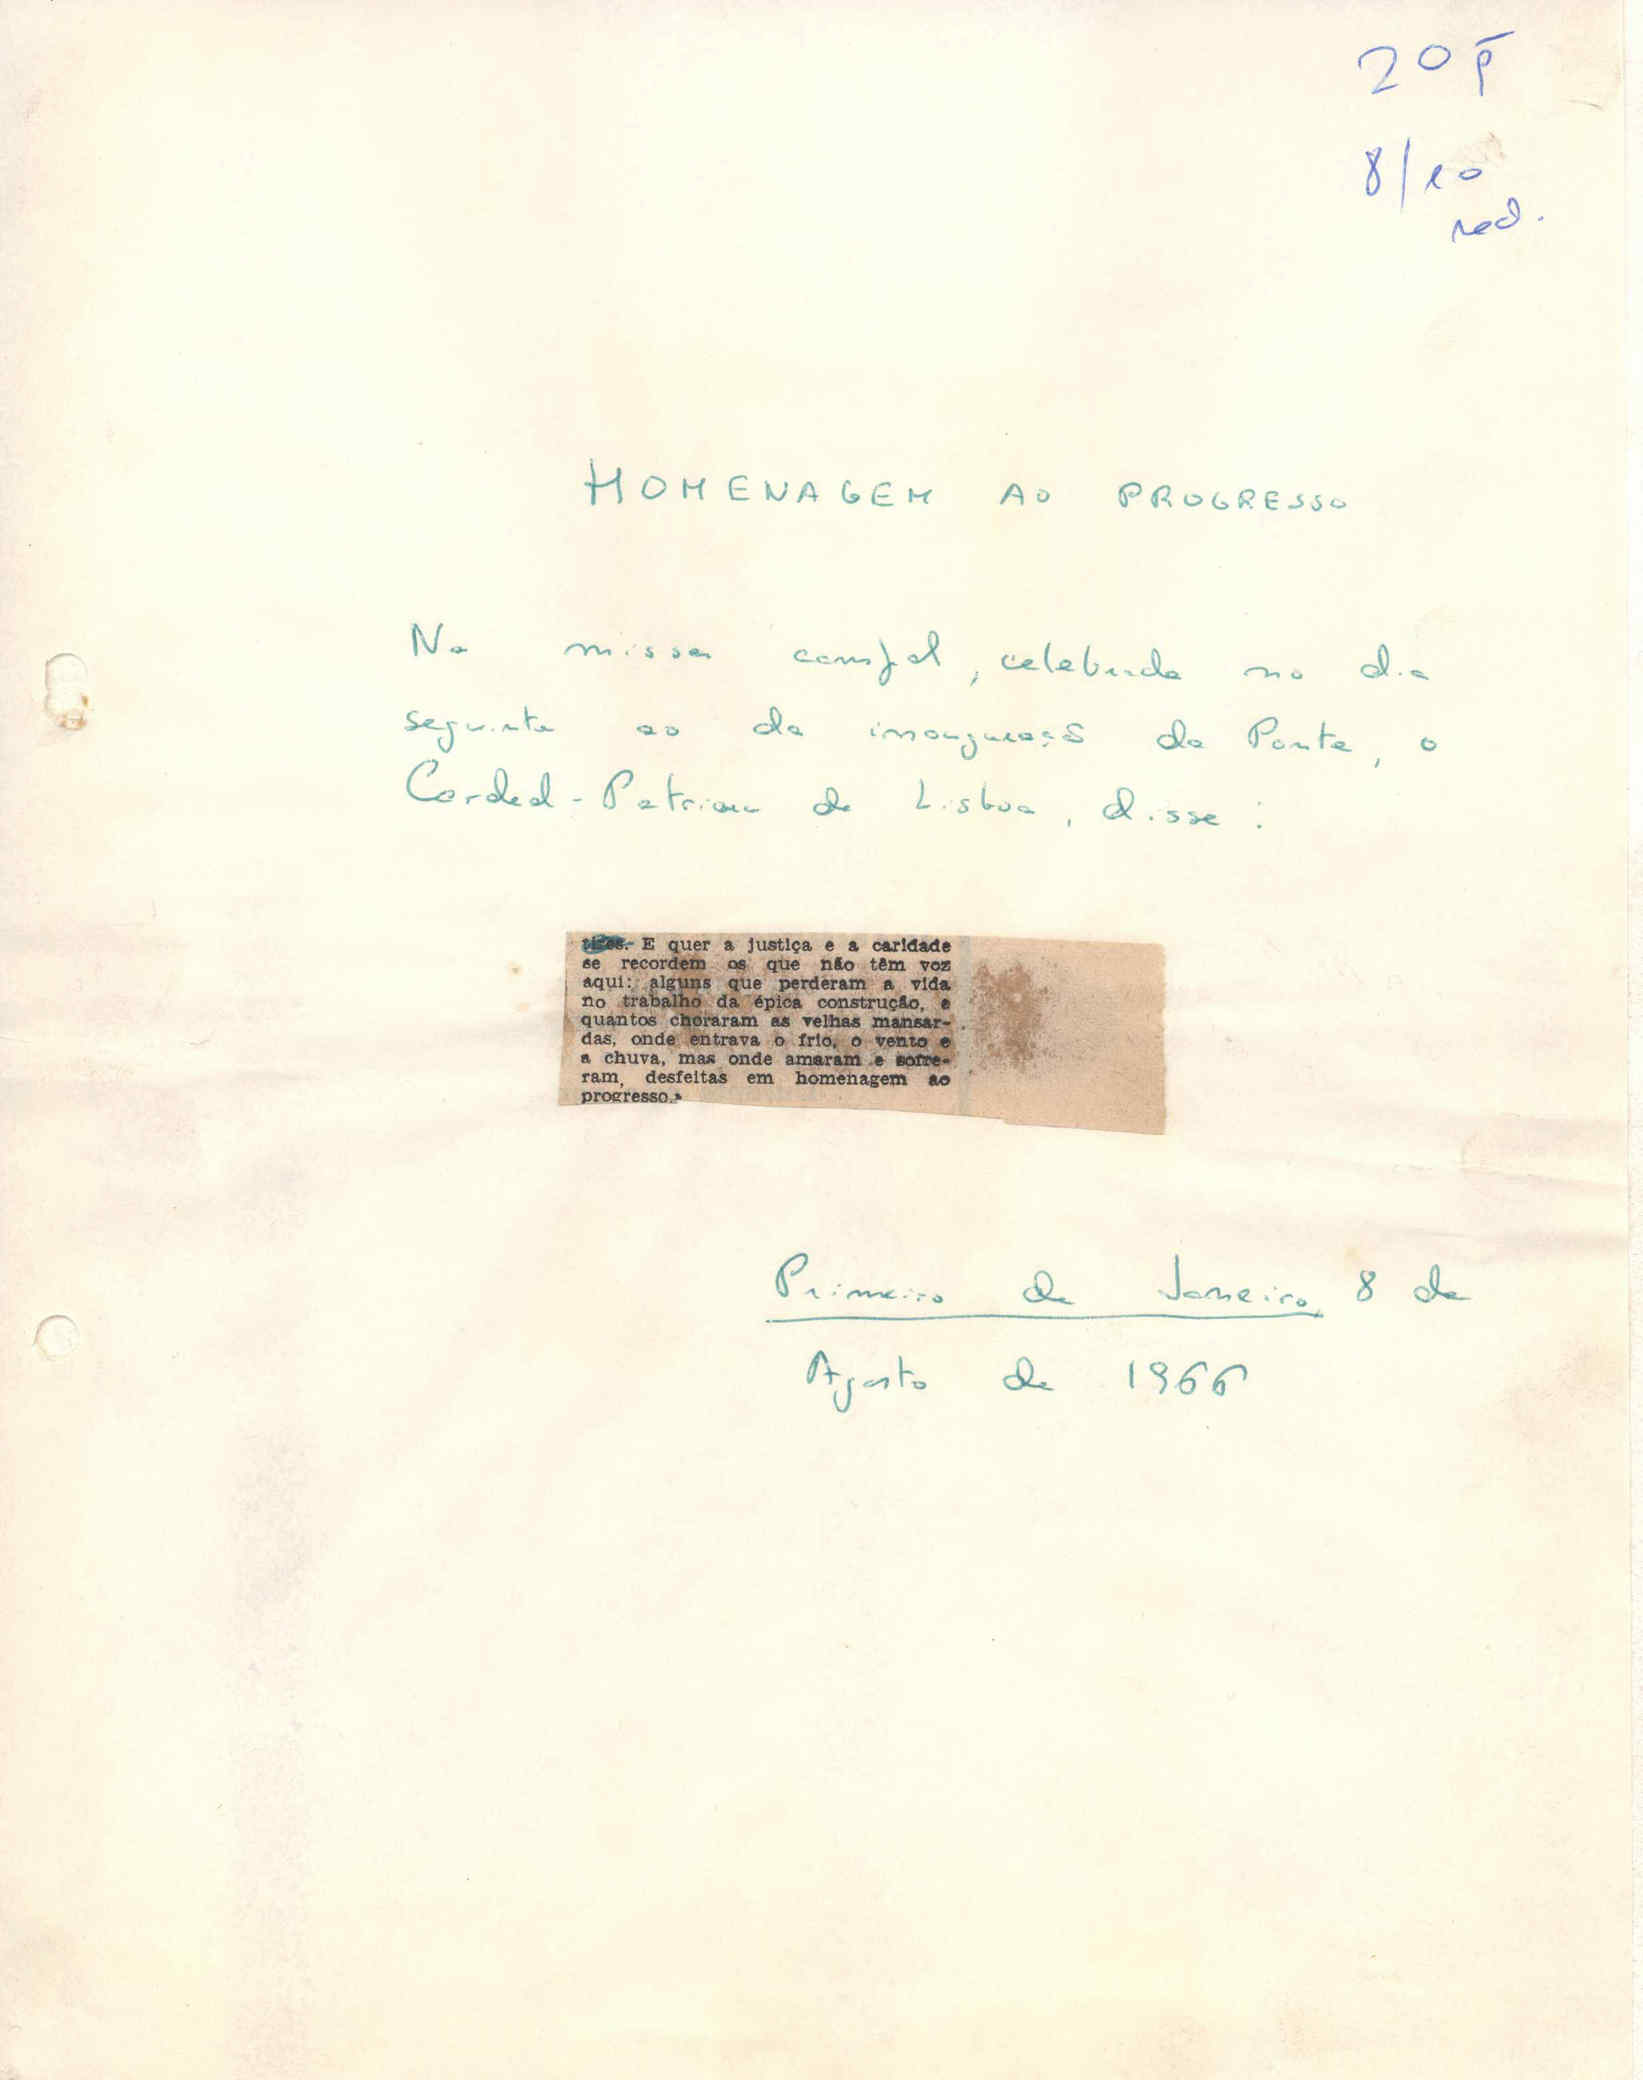 20 p
8/10
red.
HOMENAGEM AO PROGRESSO
Na missa campal, celebrada no dia
seguinte ao da inauguração da Ponte, o
Cardeal-Patriarca de Lisboa, disse:
E quer a justiça e a caridade
se recordem os que não têm voz
aqui: alguns que perderam a vida
no trabalho da épica construção, e
quantos choraram as velhas mansar-
das, onde entrava o frio, o vento e
a chuva, mas onde amaram e sofre-
ram, desfeitas em homenagem ao
progresso.»
Primeiro de Janeiro 8 de
Agosto de 1966